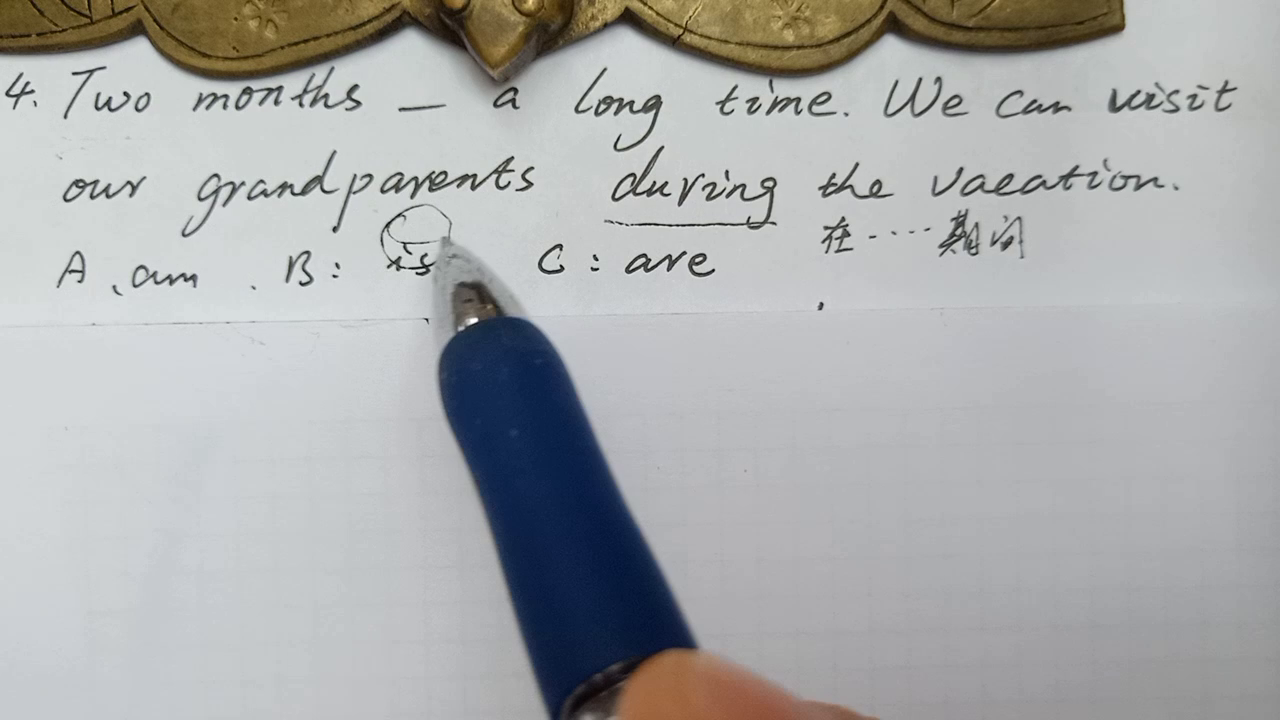 4. Two months _ a long time. We can visit
our grandparents during the vacation.
在····期间
A. am. B: is C: are